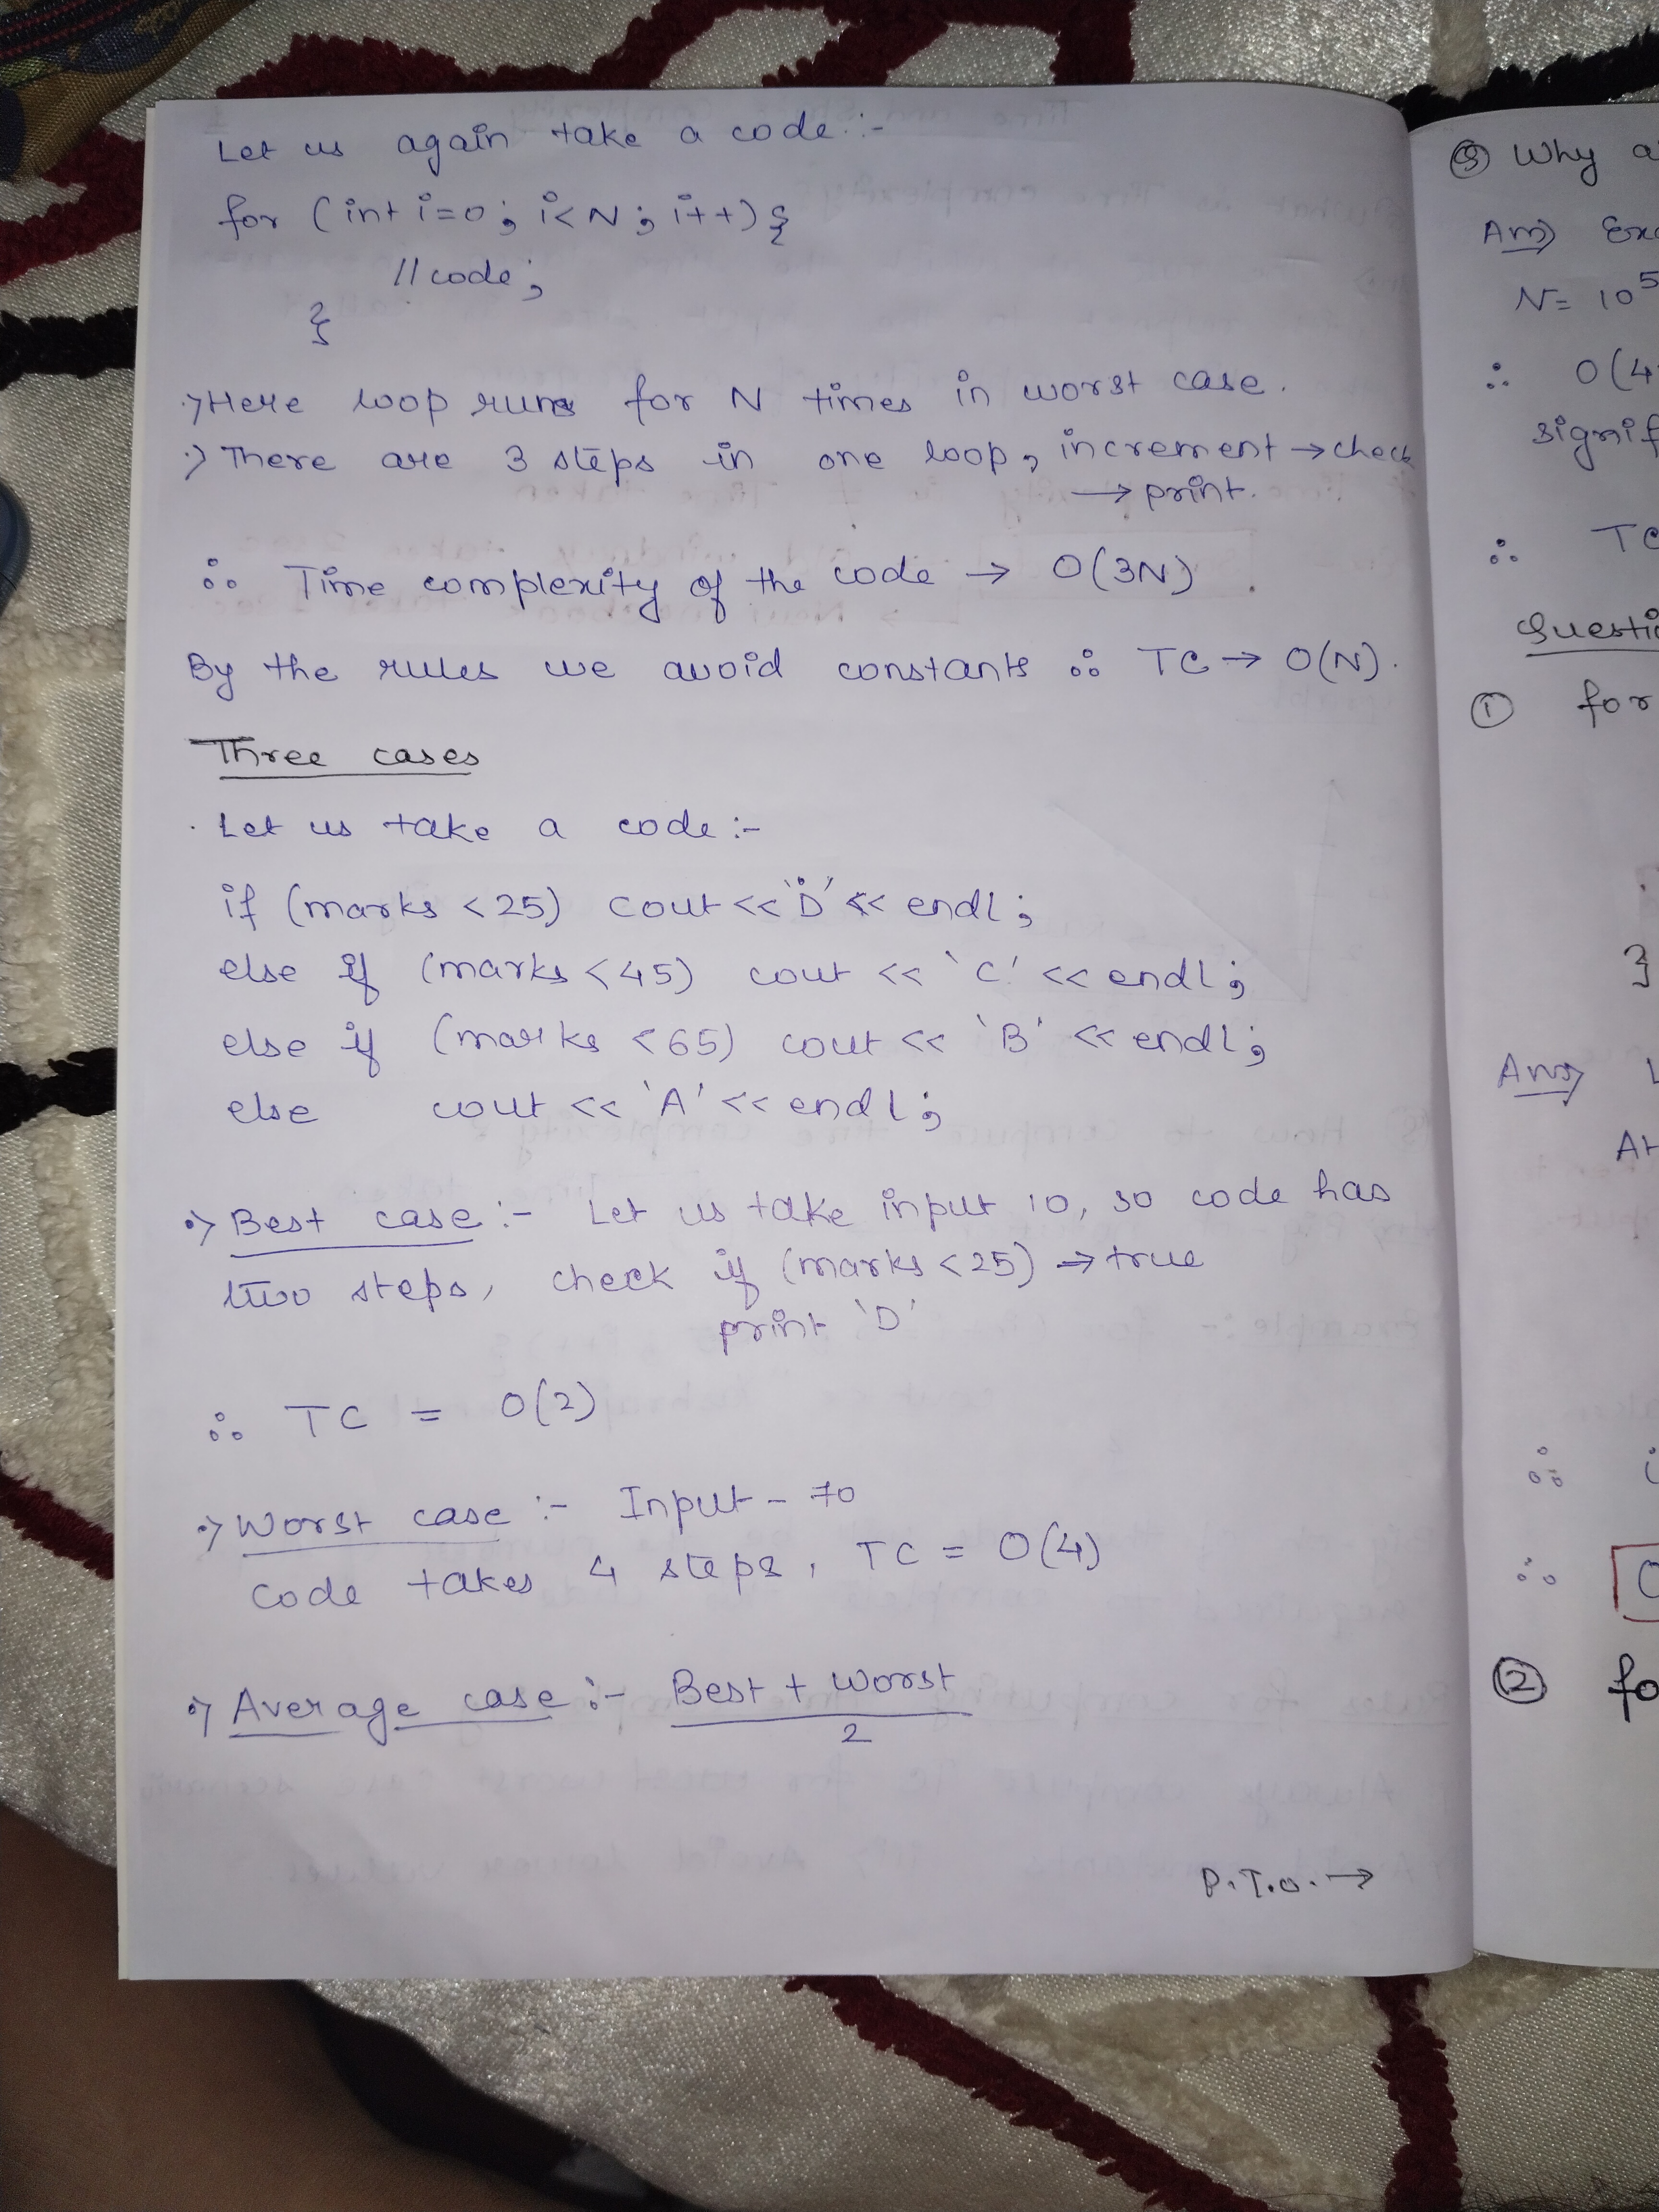 Let us again take a code :-
for (int i=0; i<N; i++) {
//code;
}
Here loop runs for N times in worst case.
There are 3 steps in one loop, increment → check
→ print.
∴ Time complexity of the code → O(3N)
By the rules we avoid constants ∴ TC → O(N).
Three cases
Let us take a code :-
if (marks <25) cout << 'D' << endl;
else if (marks <45) cout << 'C' << endl;
else if (marks <65) cout << 'B' << endl;
else cout << 'A' << endl;
Best case :- Let us take input 10, so code has
two steps, check if (marks <25) → true
print 'D'
∴ TC = O(2)
Worst case :- Input - 70
Code takes 4 steps, TC = O(4)
Average case :- Best + Worst
2
P.T.O. →
Q Why a
Ans) Exc
N= 10^5
∴ O(4
signif
∴ TC
Questio
① for
}
Ans) L
At
∴ i
∴ O
② fo